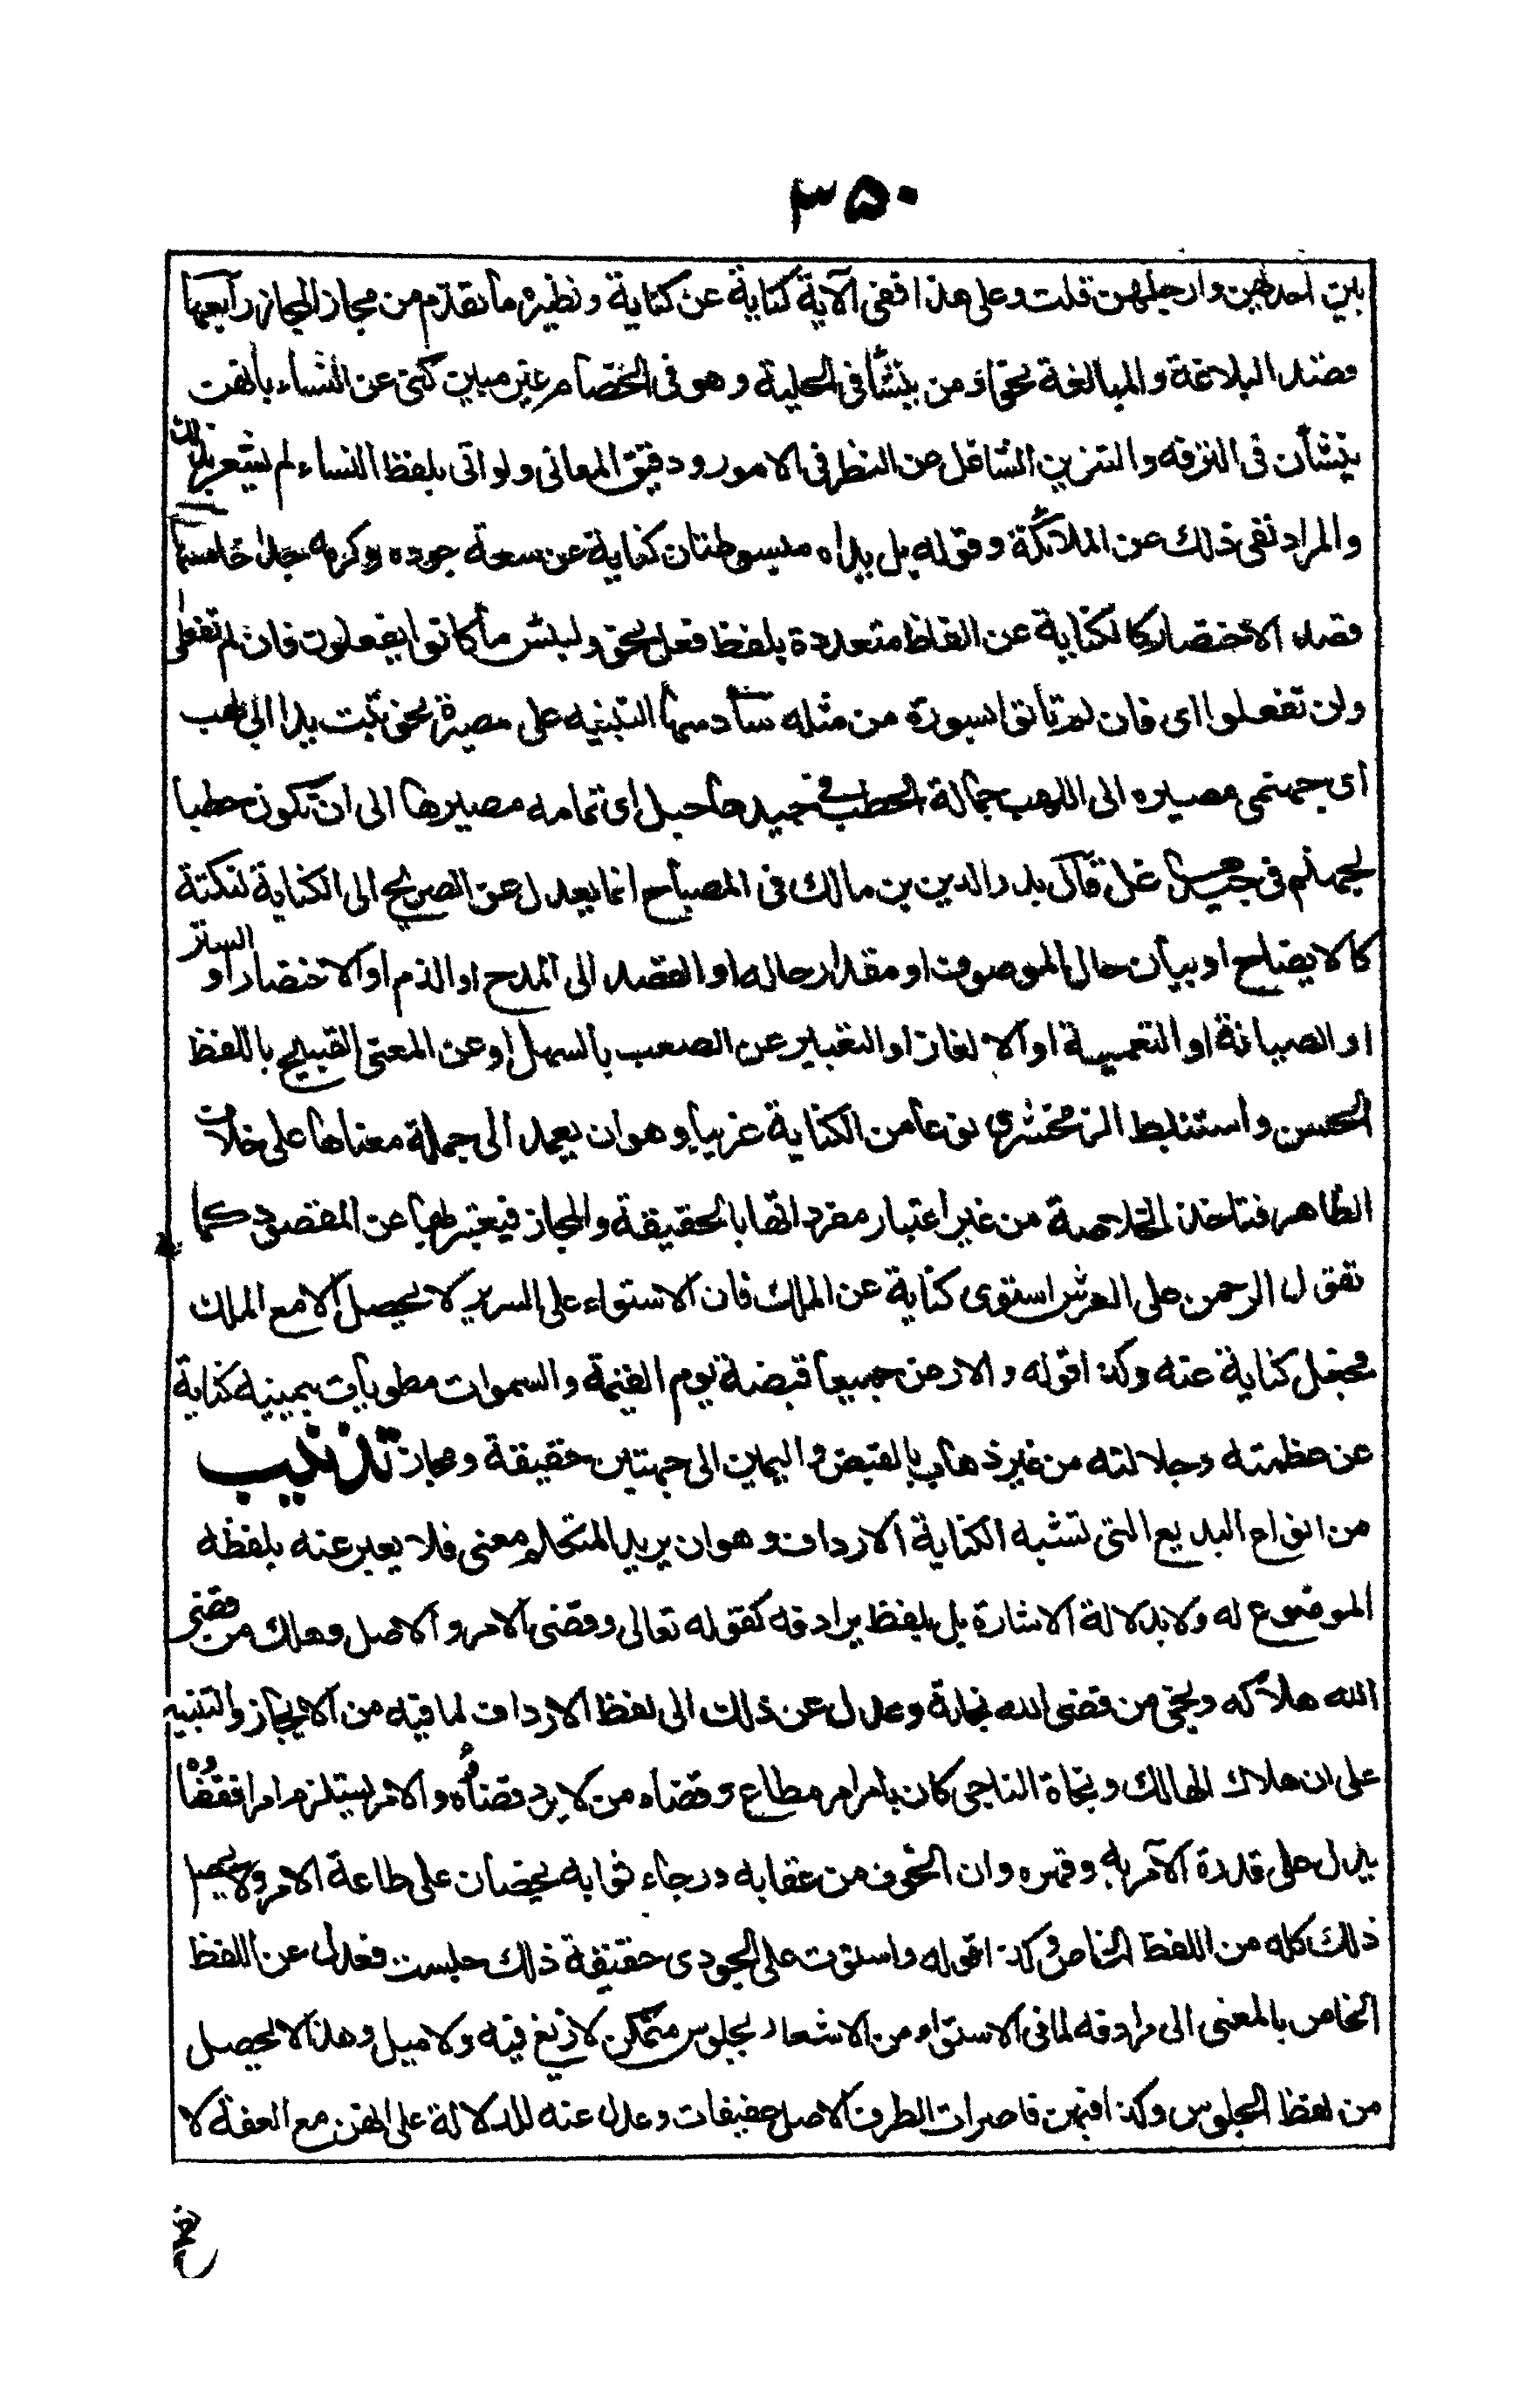 ۳۵۰
بين ايديهن وارجلهن قلت وعلى هذا ففى الآية كناية عن كناية ونظيره ما تقدم من مجاز المجاز رابعها
قصد البلاغة والمبالغة نحو او من ينشأ فى الحلية وهو فى الخصام غير مبين كنى عن النساء بانهن
ينشأن فى الترفه والتزين الشاغل عن النظر فى الامور ودقيق المعانى ولو اتى بلفظ النساء لم يشعر بذلك
والمراد نفى ذلك عن الملائكة وقوله بل يداه مبسوطتان كناية عن سعة جوده وكرمه جدا خامسها
قصد الاختصار كالكناية عن الفاظ متعددة بلفظ فعل نحو ولبئس ما كانوا يفعلون فان لم تفعلوا
ولن تفعلوا اى فان لم تاتوا بسورة من مثله سادسها التنبيه على مصيره نحو تبت يدا ابى لهب
اى جهنمى مصيره الى اللهب حمالة الحطب فى جيدها حبل اى نمامة مصيرها الى ان تكون حطبا
لجهنم فى جيدها غل قال بدر الدين بن مالك فى المصباح انما يعدل عن الصريح الى الكناية لنكتة
كالايضاح او بيان حال الموصوف او مقدار حاله او القصد الى المدح او الذم او الاختصار او الستر
او الصيانة او التعمية او الالغاز او التعبير عن الصعب بالسهل او عن المعنى القبيح باللفظ
الحسن واستنبط الزمخشرى نوعا من الكناية غريبا وهو ان يعمد الى جملة معناها على خلاف
الظاهر فتاخذ الخلاصة من غير اعتبار مفرداتها بالحقيقة والمجاز فيعبر بها عن المقصود كما
تقول الرحمن على العرش استوى كناية عن الملك فان الاستواء على السرير لا يحصل الا مع الملك
فجعل كناية عنه وكذا قوله والارض جميعا قبضة يوم القيمة والسموات مطويات بيمينه كناية
عن عظمته وجلالته من غير ذهاب بالقبض واليمين الى جهتين حقيقة ومجاز تذنيب
من انواع البديع التى تشبه الكناية الارداف وهو ان يريد المتكلم معنى فلا يعبر عنه بلفظه
الموضوع له ولا بدلالة الاشارة بل بلفظ يرادفه كقوله تعالى وقضى الامر والاصل وهلك من قضى
الله هلاكه ونجى من قضى الله نجاته وعدل عن ذلك الى لفظ الارداف لما فيه من الايجاز والتنبيه
على ان هلاك الهالك ونجاة الناجى كان بامر امر مطاع وقضاء من لا يرد قضاؤه والامر يستلزم امرا فقضاؤه
يدل على قدرة الآمر به وقهره وان الخوف من عقابه ورجاء ثوابه يحضان على طاعة الامر ولا يحصل
ذلك كله من اللفظ الخاص وكذا قوله واستوت على الجودى حقيقة ذلك جلست فعدل عن اللفظ
الخاص بالمعنى الى مرادفه لما فى الاستواء من الاشعار بجلوس متمكن لا زيغ فيه ولا ميل وهذا لا يحصل
من لفظ الجلوس وكذا فيهن قاصرات الطرف الاصل عفيفات وعدل عنه للدلالة على انهن مع العفة لا